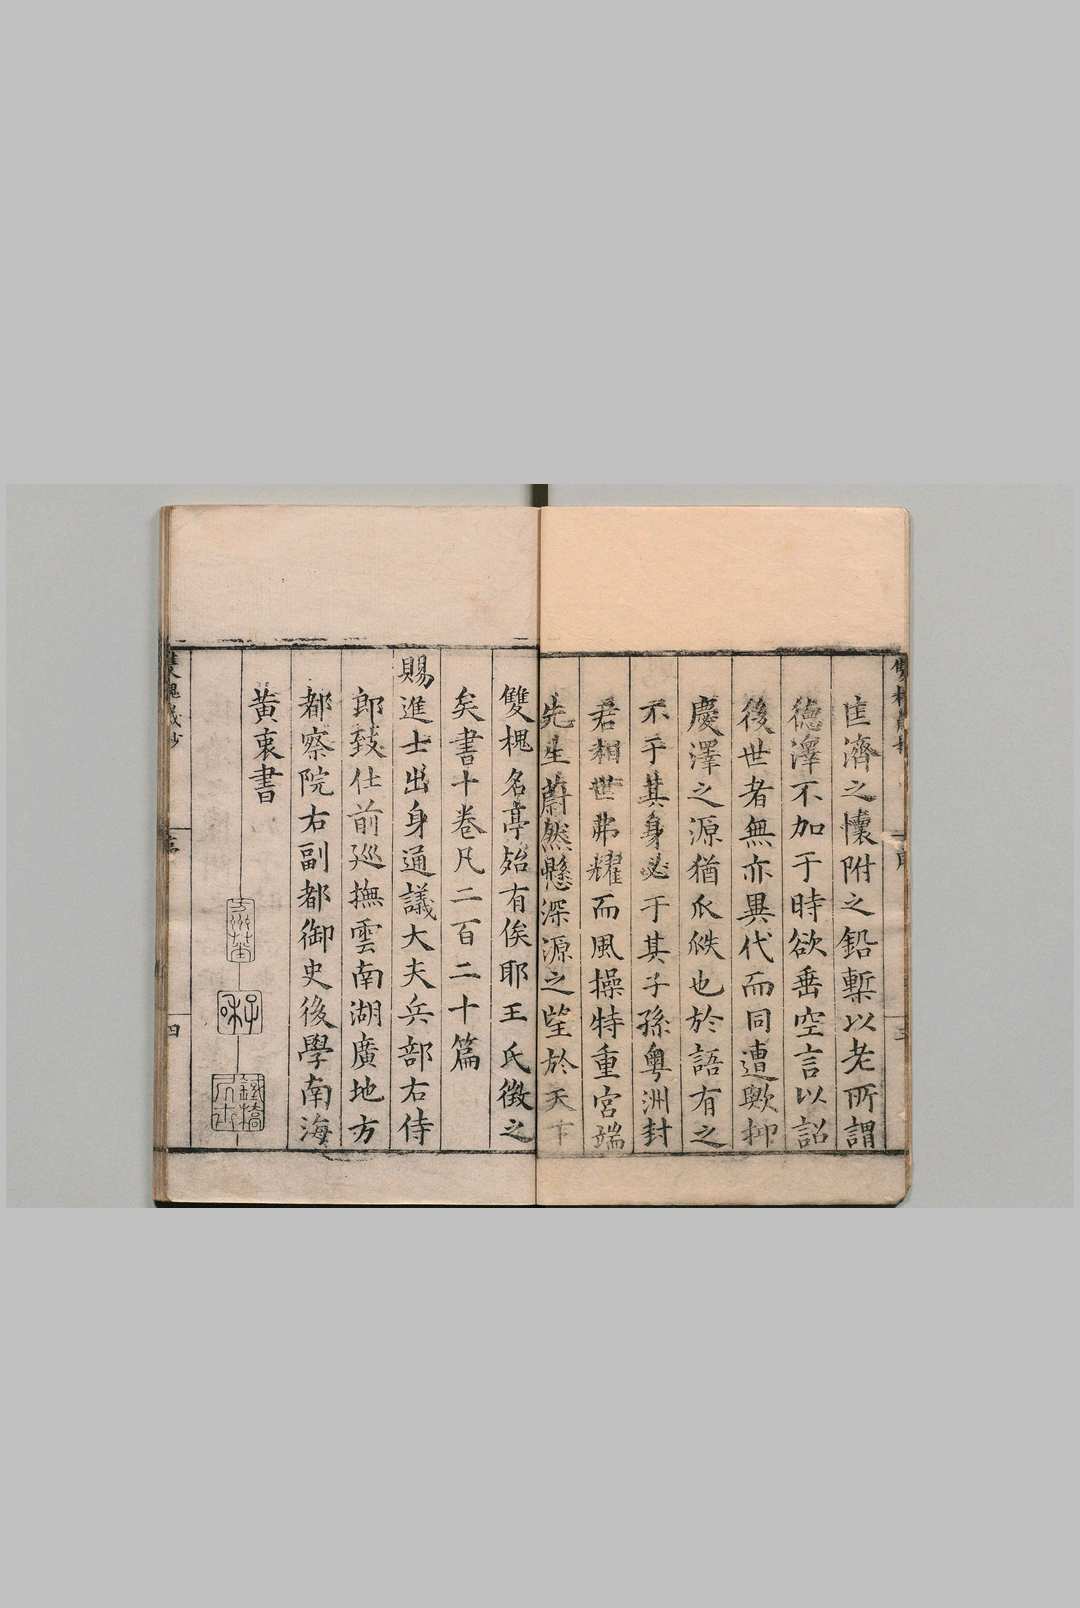 匡濟之懷附之鉛槧以老所謂
德澤不加于時欲垂空言以詔
後世者無亦異代而同遭歟抑
慶澤之源猶爪瓞也於語有之
不于其身必于其子孫粵洲封
君相世弗耀而風操特重宮端
先生蔚然懸深源之望於天下
雙槐名亭殆有俟耶王氏徵之
矣書十卷凡二百二十篇
賜進士出身通議大夫兵部右侍
郎致仕前廵撫雲南湖廣地方
都察院右副都御史後學南海
黃衷書
子和
鐵橋
四